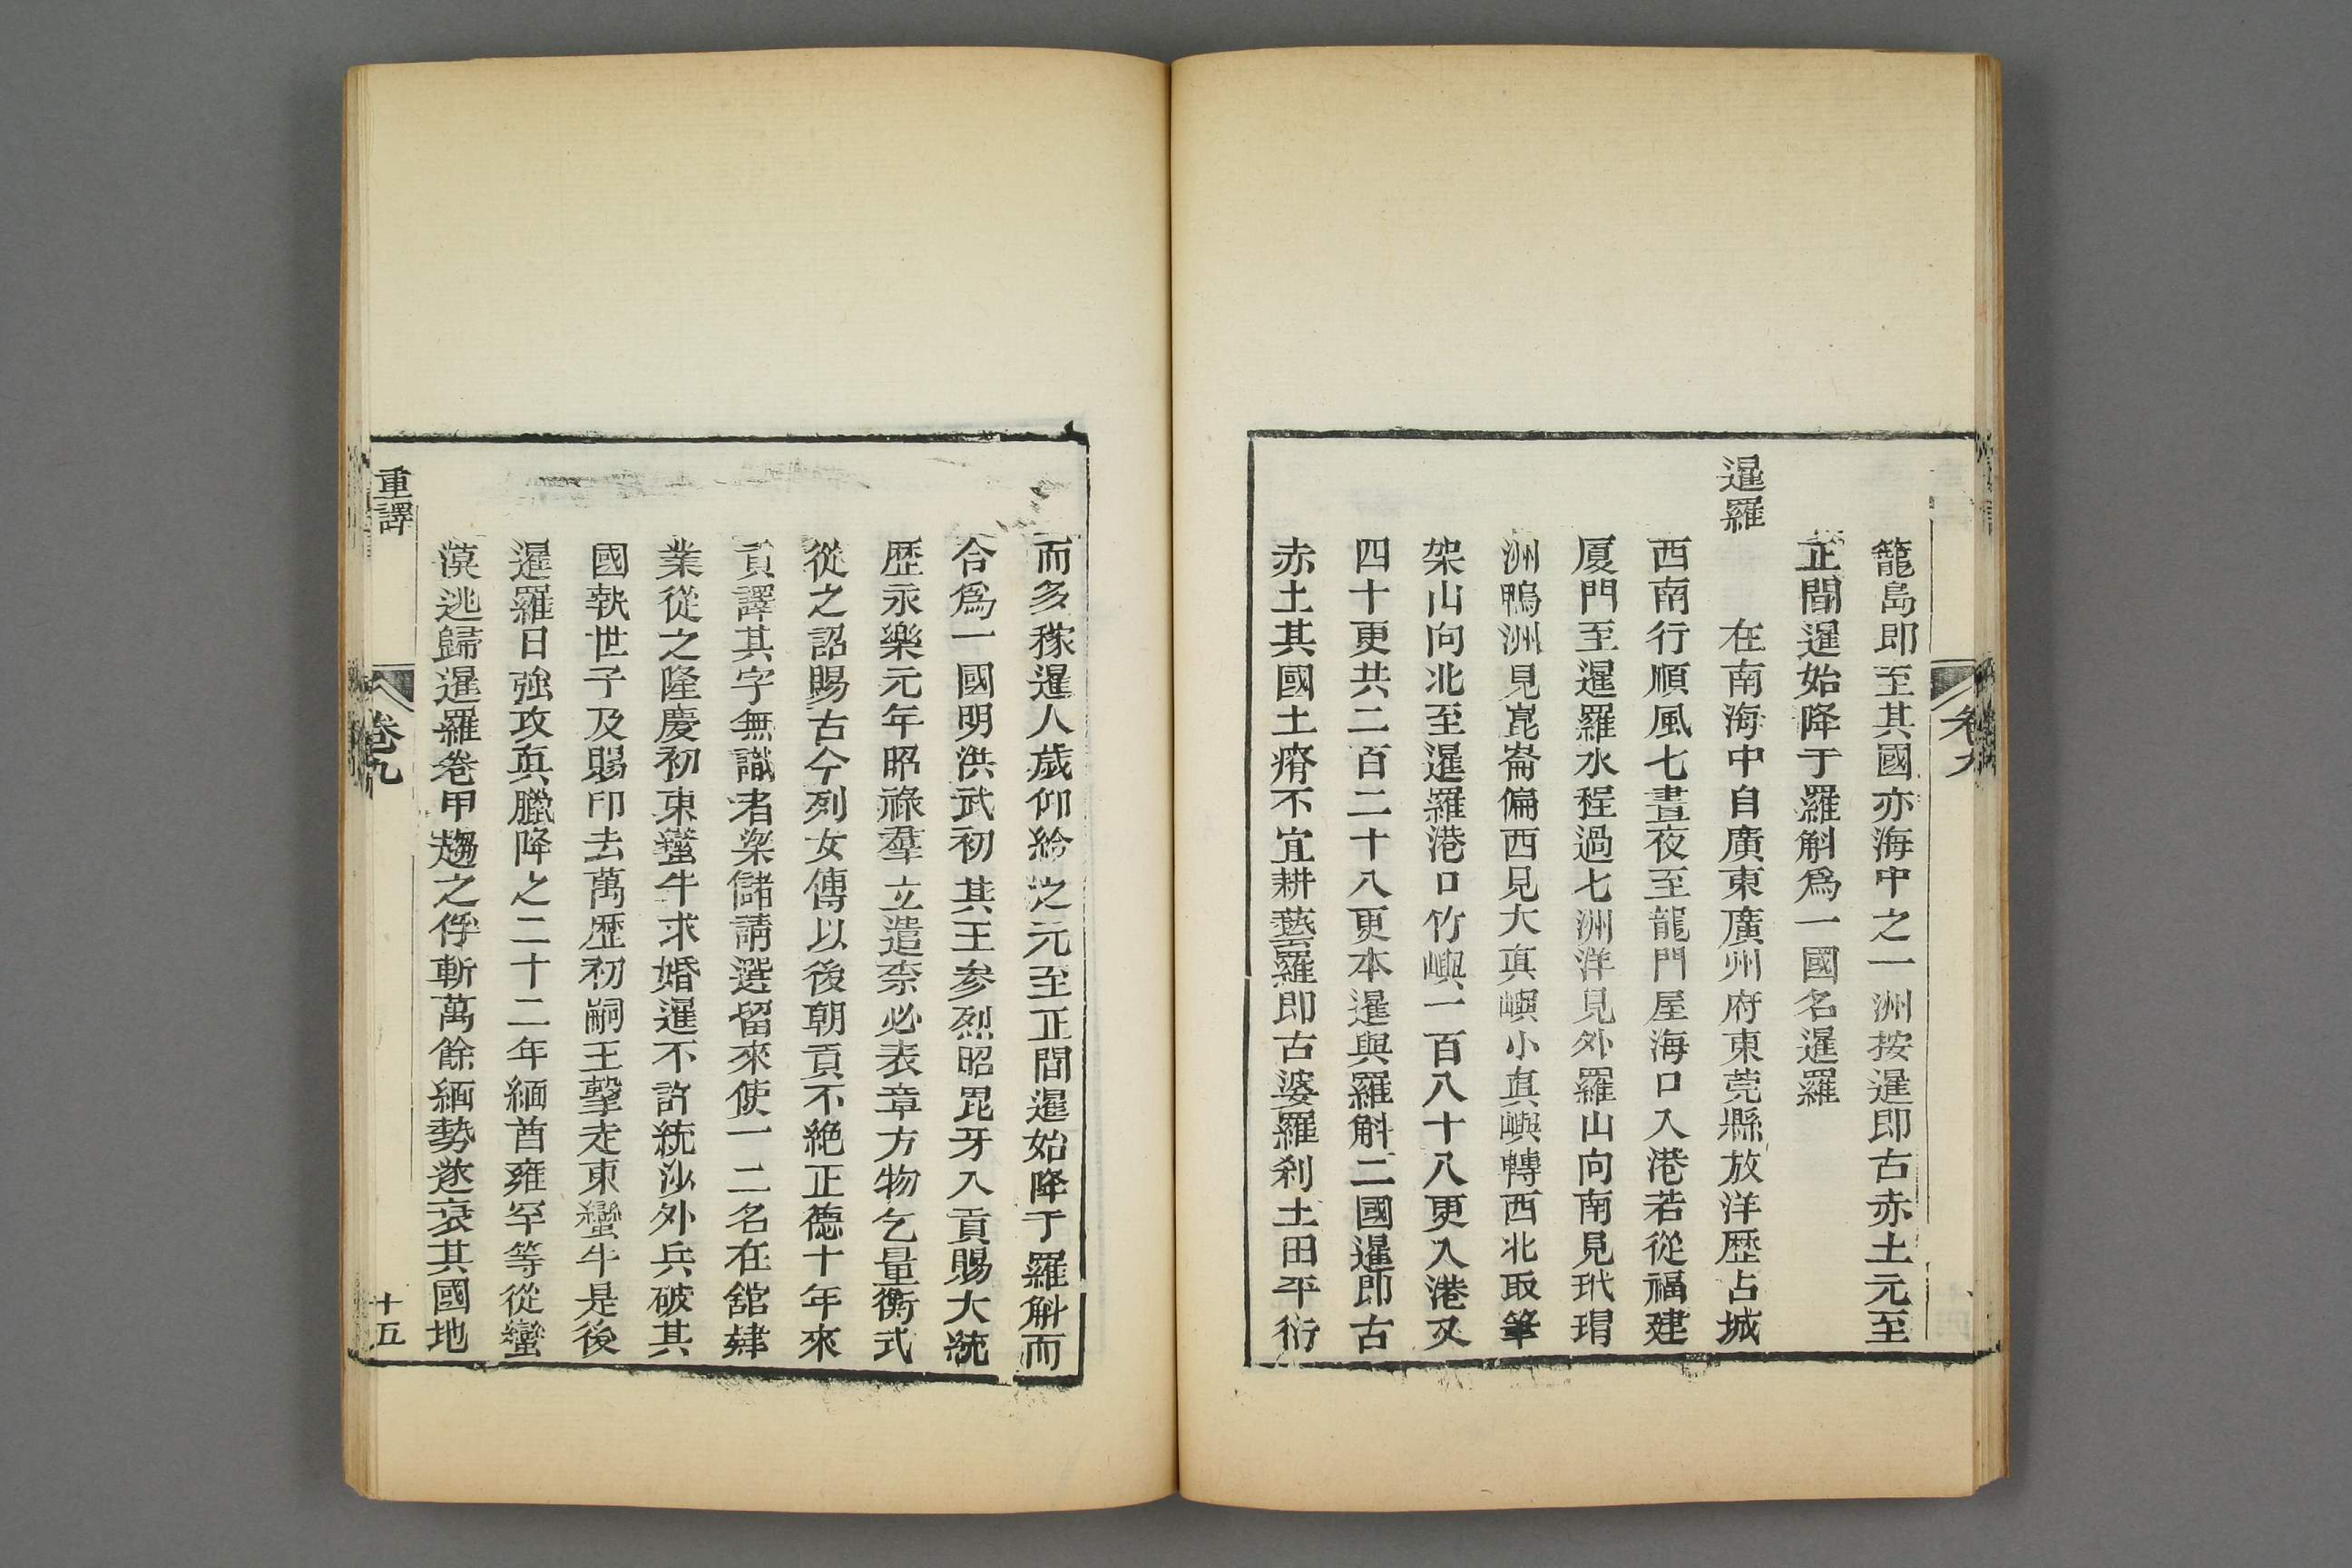 籠島即至其國亦海中之一洲按暹即古赤土元至
正間暹始降于羅斛爲一國名暹羅
暹羅
在南海中自廣東廣州府東莞縣放洋歷占城
西南行順風七晝夜至龍門屋海口入港若從福建
厦門至暹羅水程過七洲洋見外羅山向南見玳瑁
洲鴨洲見崑崙偏西見大真嶼小真嶼轉西北取筆
架山向北至暹羅港口竹嶼一百八十八更入港又
四十更共二百二十八更本暹與羅斛二國暹即古
赤土其國土瘠不宜耕藝羅即古婆羅刹土田平衍
卷九
而多稼暹人歲仰給之元至正間暹始降于羅斛而
合爲一國明洪武初其王參烈昭毘牙入貢賜大統
歷永樂元年昭祿羣立遣柰必表章方物乞量衡式
從之詔賜古今列女傳以後朝貢不絶正德十年來
貢譯其字無識者梁儲請選留來使一二名在舘肄
業從之隆慶初東蠻牛求婚暹不許統沙外兵破其
國執世子及賜印去萬歷初嗣王擊走東蠻牛是後
暹羅日強攻真臘降之二十二年緬酋雍罕等從蠻
漠逃歸暹羅卷甲趨之俘斬萬餘緬勢遂衰其國地
重譯
卷九
十五